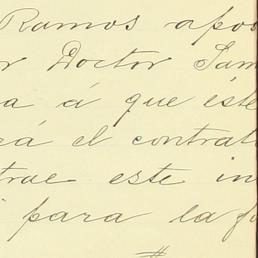 Ramos apos
r Doctor Sam
a á que éste
rá el contrat
trae este in
para la f
#